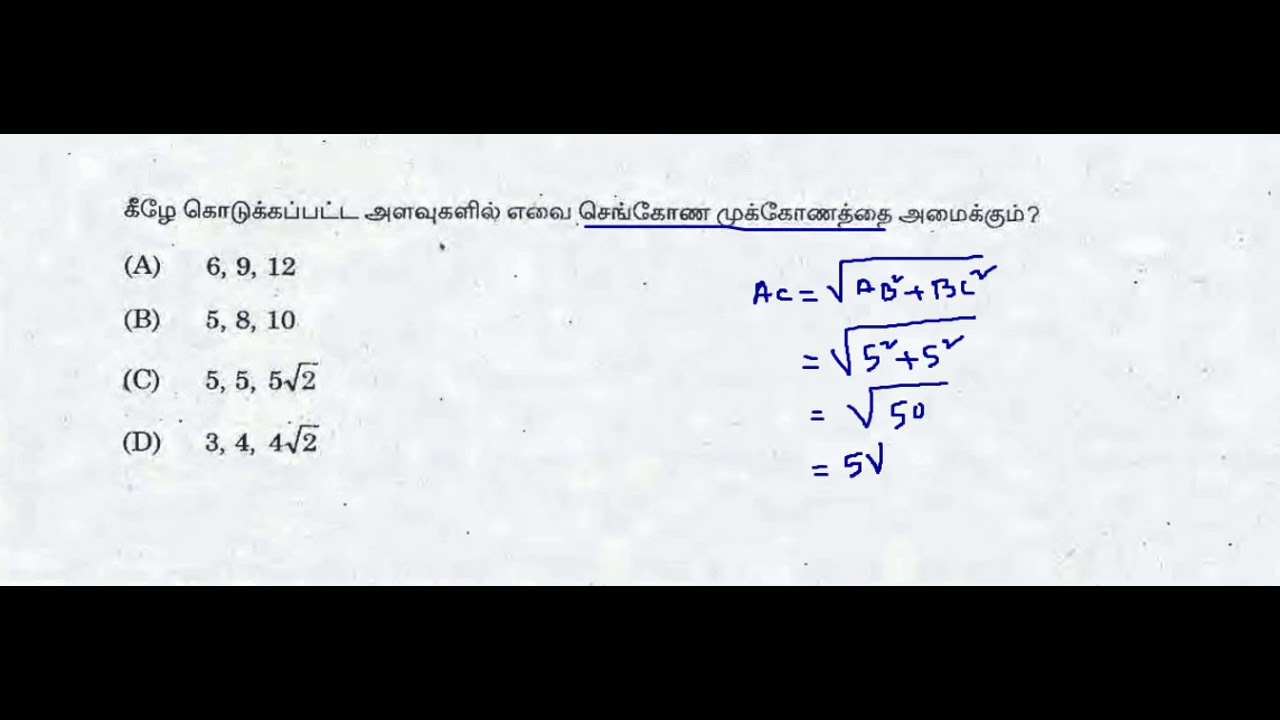 கீழே கொடுக்கப்பட்ட அளவுகளில் எவை செங்கோண முக்கோணத்தை அமைக்கும்?
(A) 6, 9, 12
(B) 5, 8, 10
(C) 5, 5, 5√2
(D) 3, 4, 4√2
AC = √AB²+BC²
= √5²+5²
= √50
= 5√